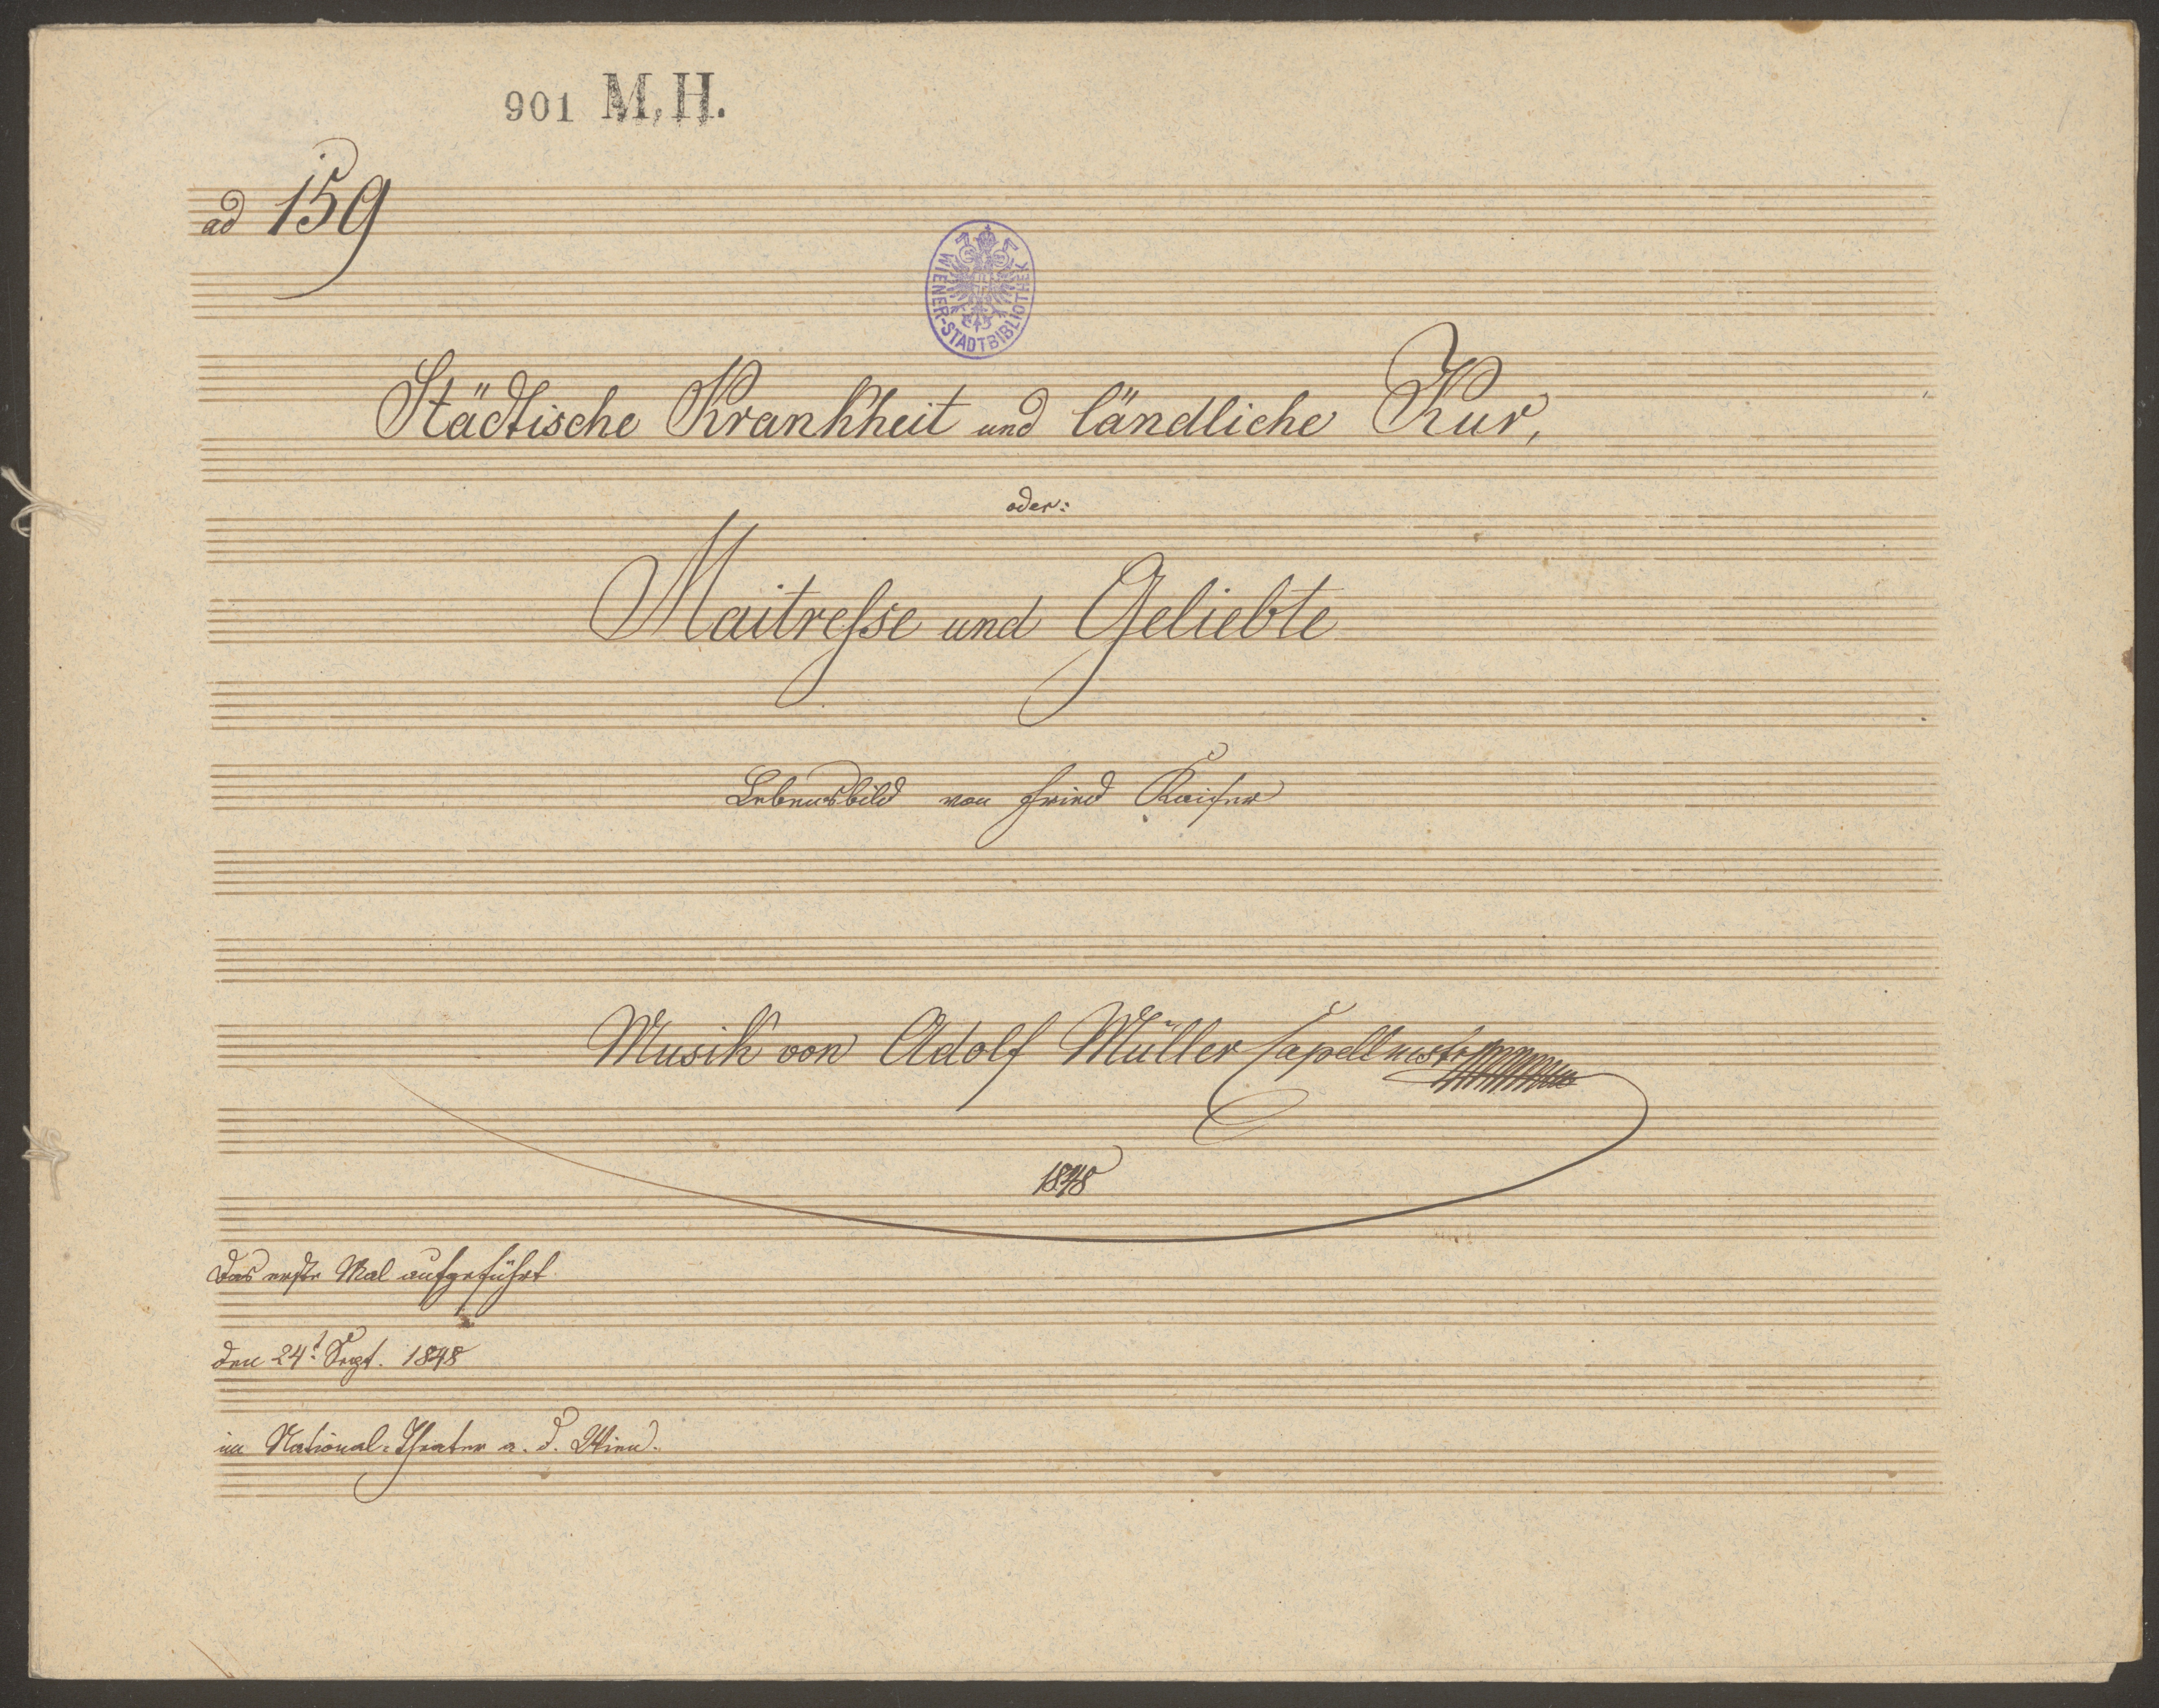 901 M.H.
ad 159
WIENER-STADTBIBLIOTHEK
Städtische Krankheit und ländliche Kur,
oder:
Maitresse und Geliebte
Lebensbild von Fried Kaiser
Musik von Adolf Müller Capellmstr
1848
Das erste Mal aufgeführt
den 24t. Sept. 1848
im National-Theater a. d. Wien.